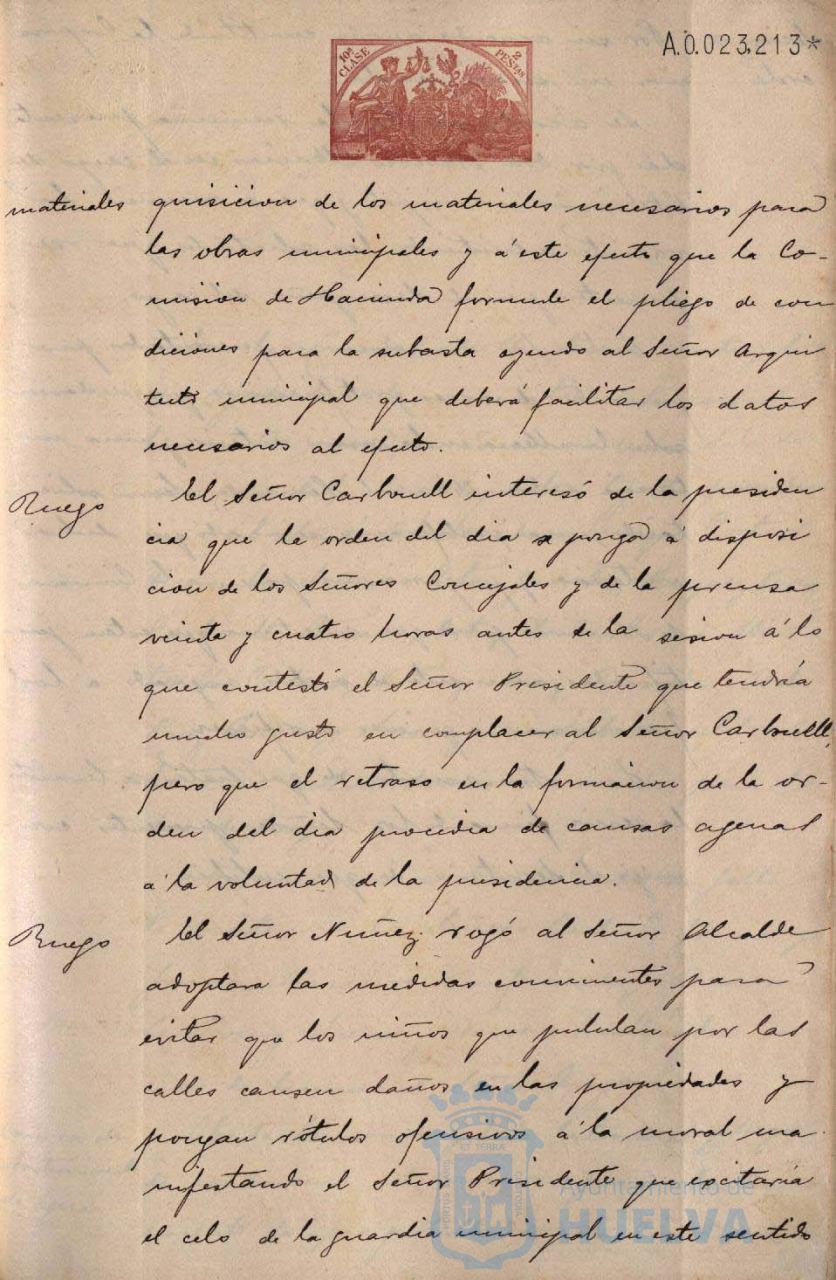 A.0.023,213*
10ª CLASE 2 PESTAS
materiales quisicion de los materiales necesarios para
las obras municipales y á este efecto que la Co-
mision de Hacienda formule el pliego de con
diciones para la subasta oyendo al Señor Arqui
tecto municipal que deberá facilitar los datos
necesarios al efecto.
Ruego El Señor Carbonell interesó de la presiden
cia que la orden del dia se ponga á disposi
cion de los Señores Concejales y de la prensa
veinte y cuatro horas antes de la sesion á lo
que contestó el Señor Presidente que tendría
mucho gusto en complacer al Señor Carbonell,
pero que el retraso en la formacion de la or-
den del dia procedia de causas agenas
á la voluntad de la presidencia.
Ruego El Señor Nuñez rogó al Señor Alcalde
adoptara las medidas convenientes para
evitar que los niños que pululan por las
calles causen daños en las propiedades y
pongan rótulos ofensivos á la moral ma
nifestando el Señor Presidente que excitaría
el celo de la guardia municipal en este sentido
Ayuntamiento de
HUELVA